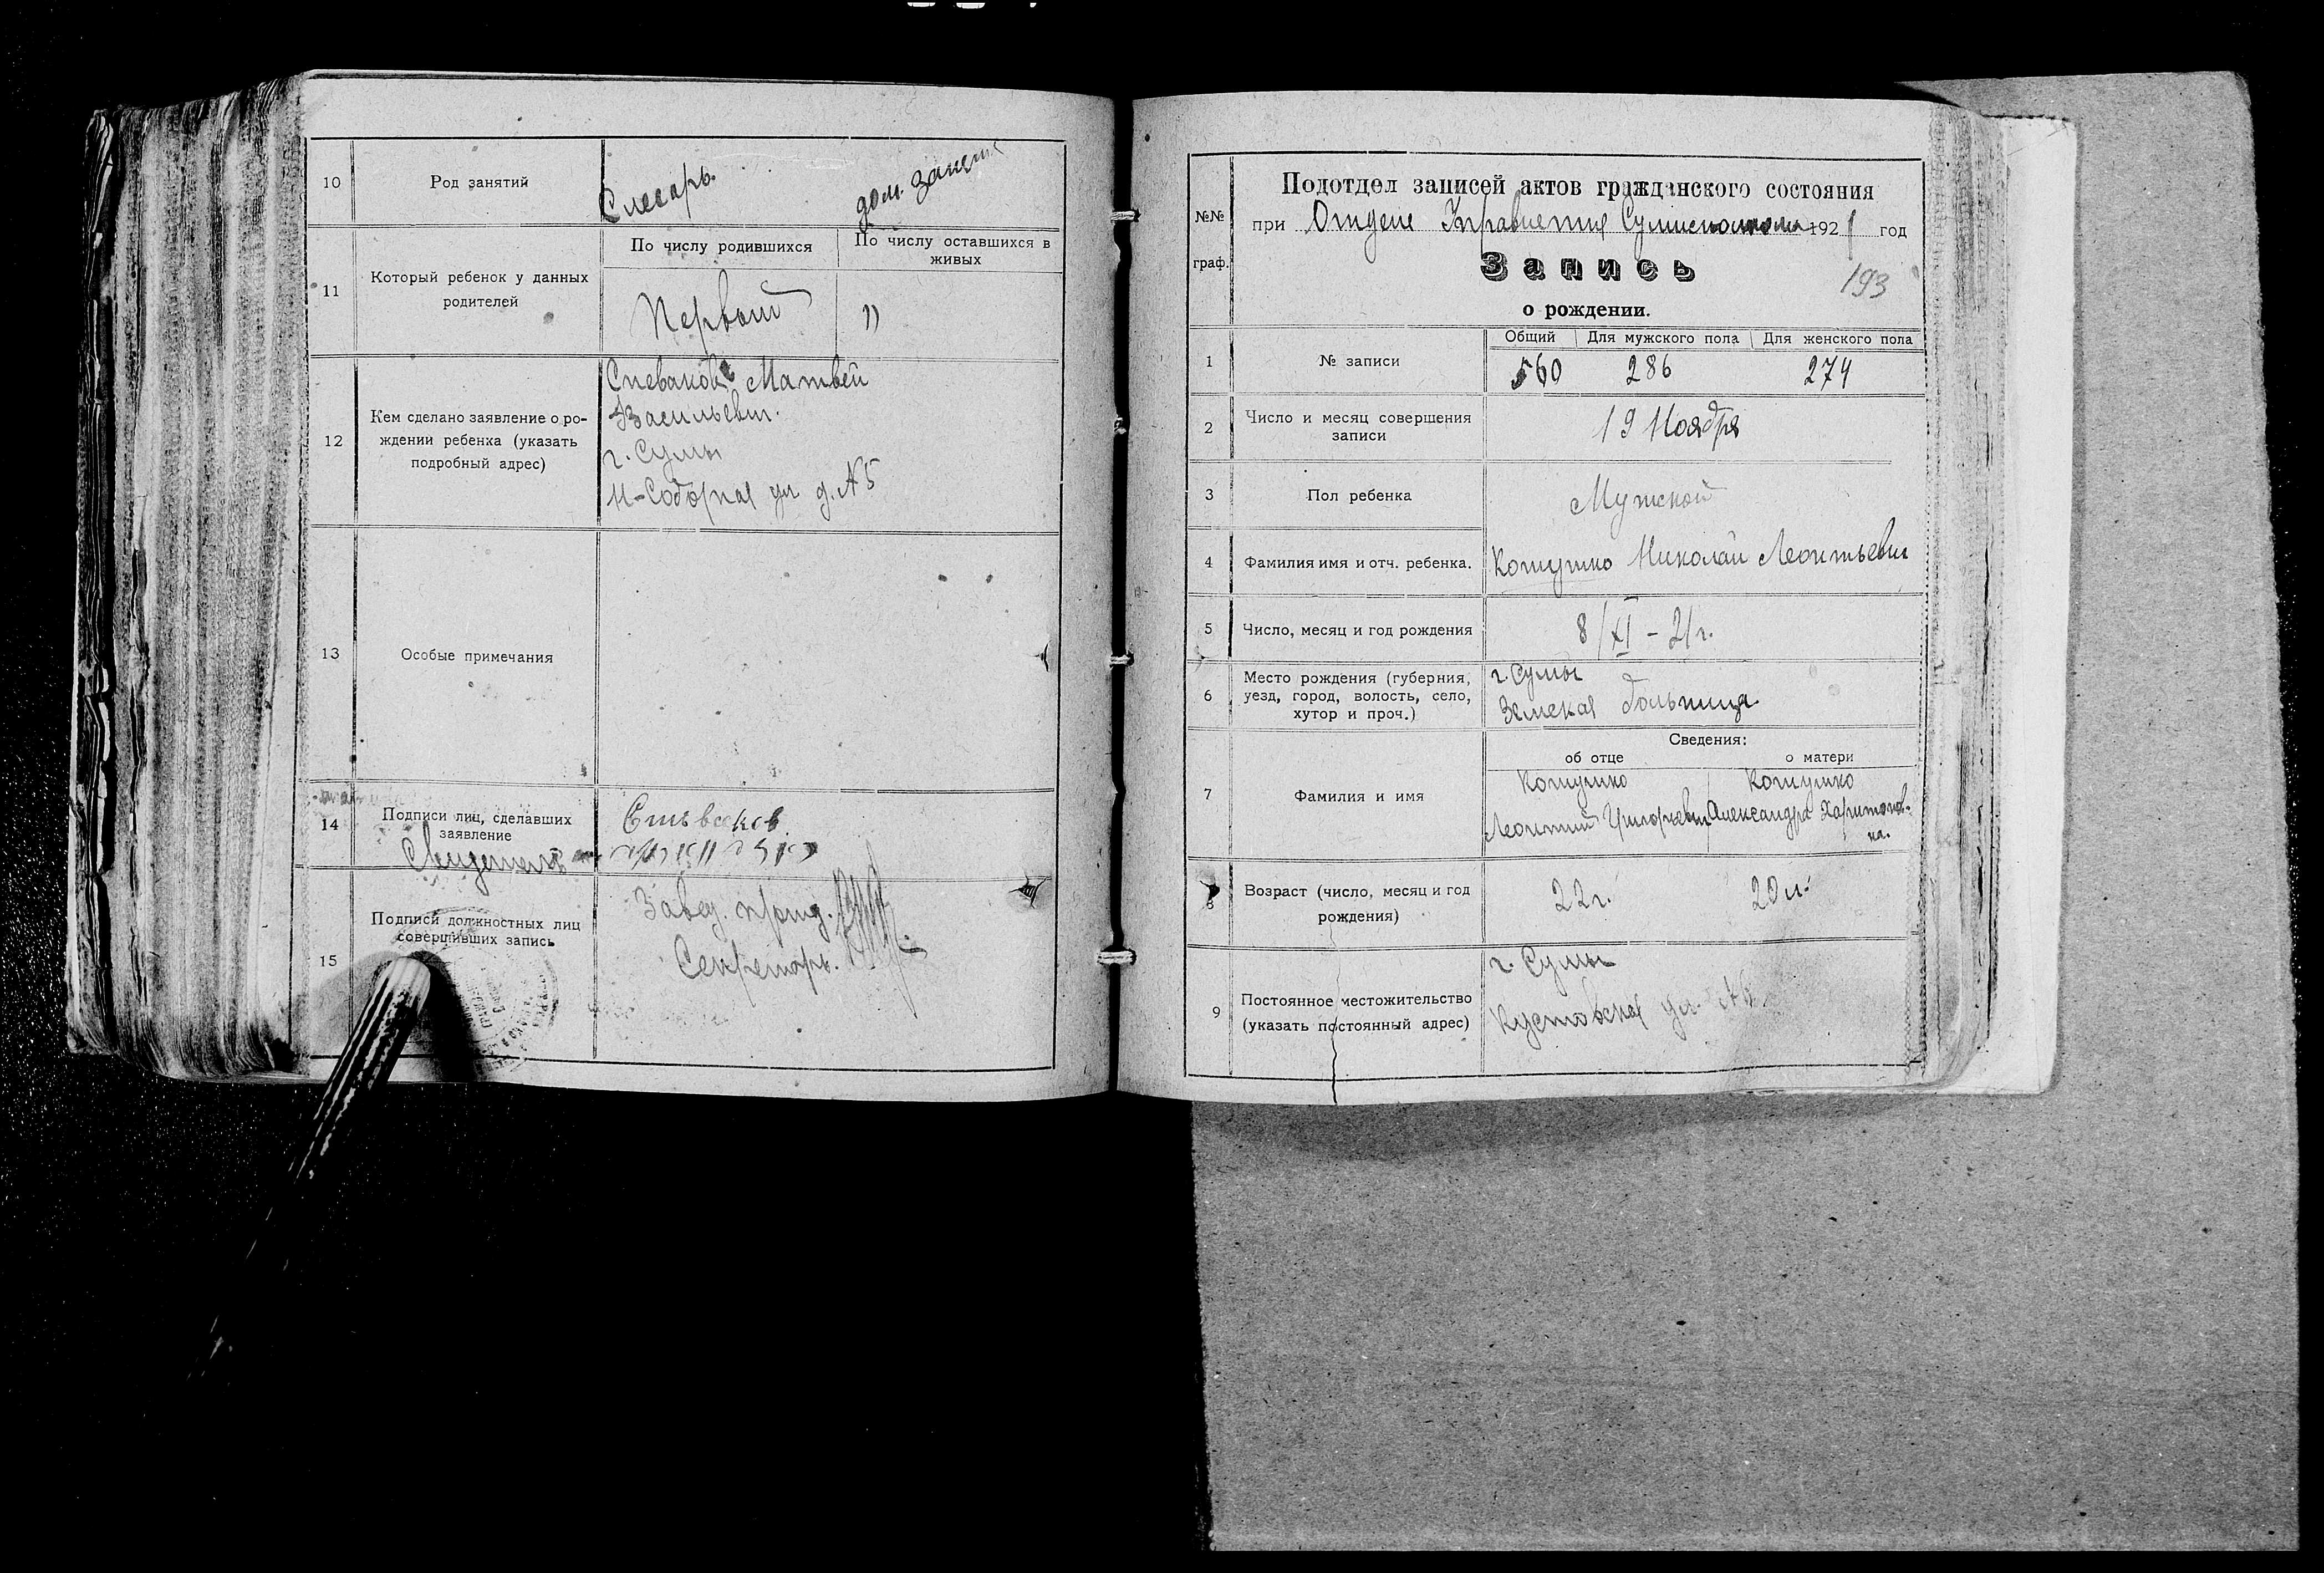 10
Род занятий
Слесарь.
дом. занят
11
Который ребенок у данных
родителей
По числу родившихся
По числу оставшихся в
живых
Первый
"
12
Кем сделано заявление о ро-
ждении ребенка (указать
подробный адрес)
Спеваков Матвей
Васильевич.
г. Сумы
Н-Соборная ул д. № 5
13
Особые примечания
14
Подписи лиц, сделавших
заявление
Свидетель
15
Подписи должностных лиц
совершивших запись
Завед.
Секретарь.
№№
граф.
Подотдел записей актов гражданского состояния
при Отделе Управления 1921 год
Запись
193
о рождении.
1
№ записи
Общий
Для мужского пола
Для женского пола
560
286
274
2
Число и месяц совершения
записи
19 Ноября
3
Пол ребенка
Мужской
4
Фамилия имя и отч. ребенка.
Кошушко Николай Леонтьевич
5
Число, месяц и год рождения
8/XI - 21 г.
6
Место рождения (губерния,
уезд, город, волость, село,
хутор и проч.)
г. Сумы
Земская больница
Сведения:
об отце
о матери
7
Фамилия и имя
Кошушко
Кошушко
Леонтий
Александра Харитонов-
на.
8
Возраст (число, месяц и год
рождения)
22 г.
20 л.
9
Постоянное местожительство
(указать постоянный адрес)
г. Сумы
ул.